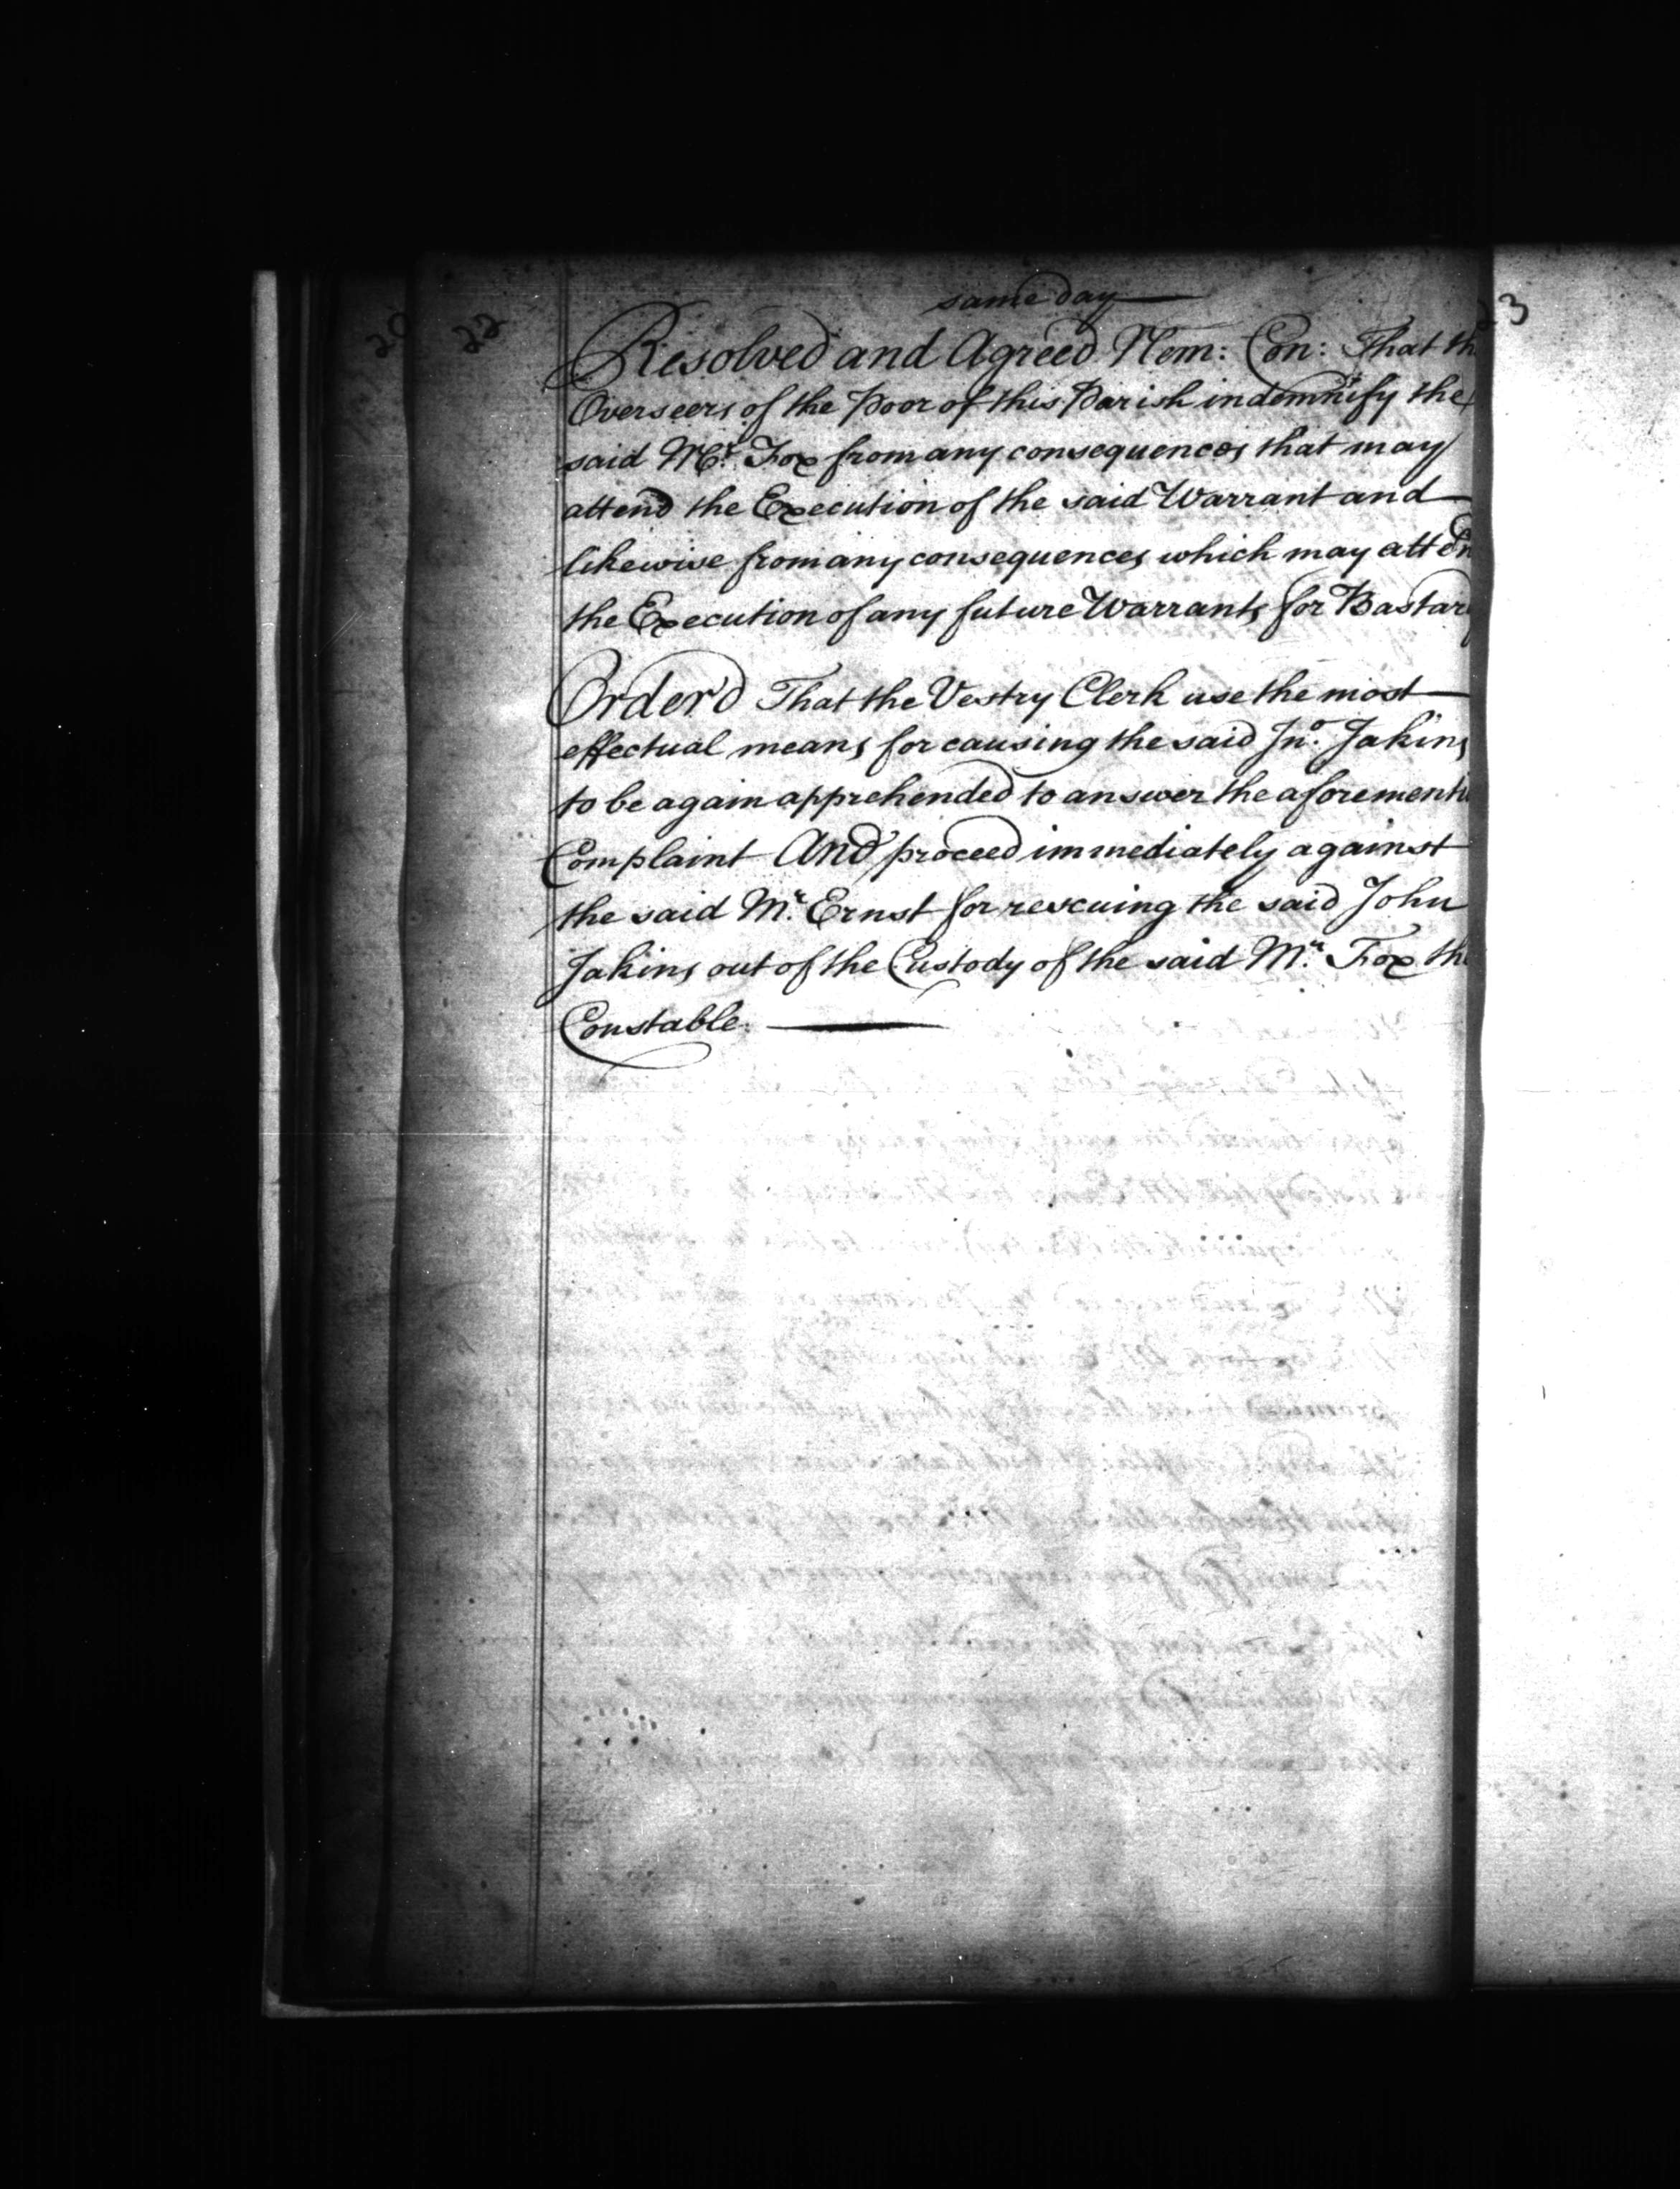 20 22 23
same day
Resolved and Agreed Nem: Con: That th
Overseers of the Poor of this Parish indemnify the
said Mr. Fox from any consequences that may
attend the Execution of the said Warrant and
likewise from any consequences which may atten
the Execution of any future Warrants for Bastar
Order'd That the Vestry Clerk use the most
effectual means for causing the said Jno. Jakins
to be again apprehended to answer the aforementi
Complaint And proceed immediately against
the said Mr. Ernst for rescuing the said John
Jakins out of the Custody of the said Mr. Fox the
Constable.